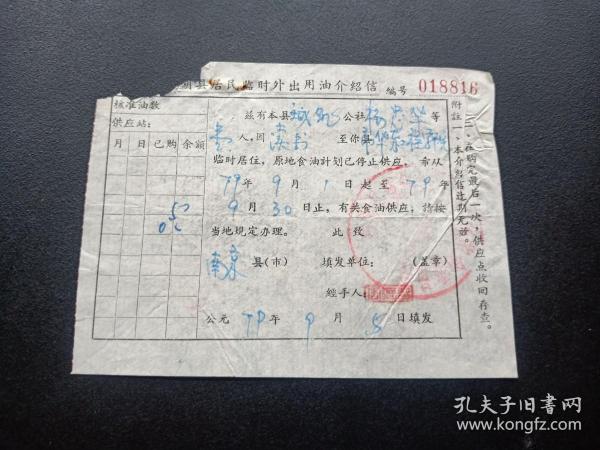 县居民临时外出用油介绍信 编号 018816
核准油数
供应站：
月 日 已购 余额
兹有本县 公社 等
人，因 至你县
临时居住，原地食油计划已停止供应，希从
79年9月1日起至79年
9月30日止，有关食油供应，请按
当地规定办理。 此致
南京县(市) 填发单位： (盖章)
经手人
公元79年9月5日填发
附註一、本介绍信过期无效。
二、在购完最后一次，供应点收回存查。
孔夫子旧书网
www.kongfz.com